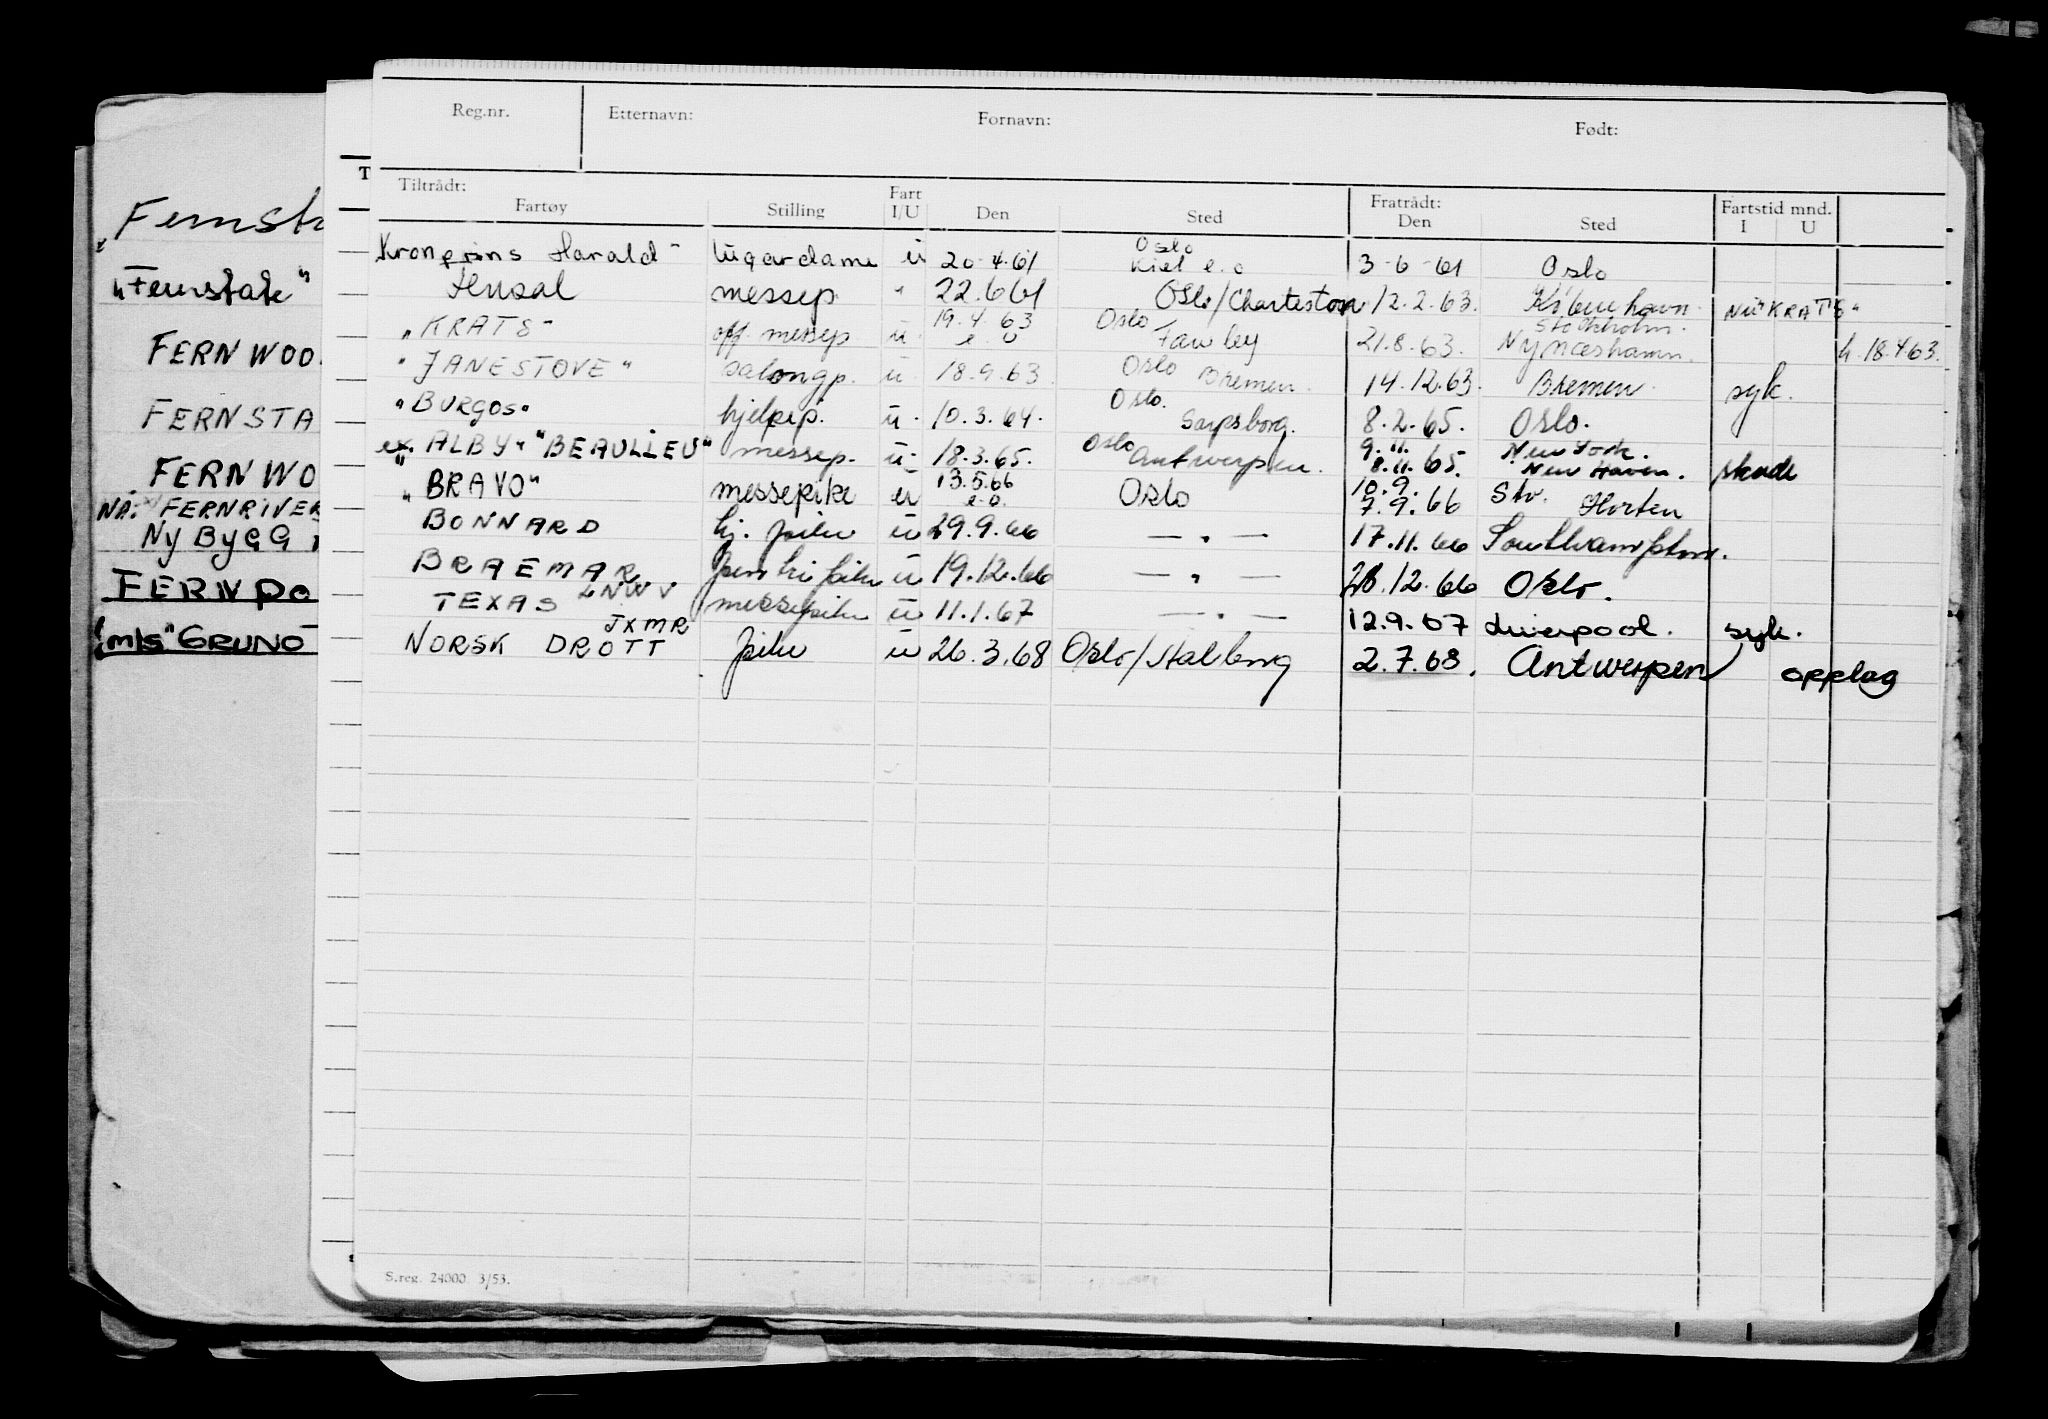 Reg.nr. Etternavn: Fornavn: Født:
Tiltrådt: Fratrådt:
Fartøy Stilling Fart I/U Den Sted Den Sted Fartstid mnd. I U
Kronprins Harald lugardame u 20.4.61 Oslo Kiel e.o 3-6-61 Oslo
messep " 22.6.61 Oslo/Charleston 12.2.63. København. nu "KRATS"
"KRATS" off. messep u. 19.4.63 e.o Oslo Fawley 21.8.63. Stockholm. Nynæshamn. h. 18.4.63.
"JANESTOVE" salongp. u. 18.9.63 Oslo Bremen. 14.12.63. Bremen. syk.
"BURGOS" hjelpep. u. 10.3.64. Oslo. Sarpsborg. 8.2.65. Oslo.
ex. ALBY " "BEAULIEU" messep. u. 18.3.65. Oslo Antwerpen. 9.11. 8.11.65. New York. New Haven. skade
"BRAVO" messepike u 13.5.66 e.o. Oslo 10.9. 7.9.66 Stv. Horten
BONNARD hj. pike u 29.9.66 — " — 17.11.66 Southampton.
BRAEMAR pentripike u 19.12.66 — " — 28.12.66 Oslo.
TEXAS LNWV messepike u 11.1.67 — " — 12.9.67 Liverpool. syk.
NORSK DROTT JXMR pike u 26.3.68 Oslo/Aalborg 2.7.68. Antwerpen opplag
S.reg. 24000 3/53.
T
"Fernsta
"Fernstate"
FERNWOO
FERNSTA
FERNWO
NÅ: FERNRIVER
NyBYGG
FERNPO
m/s "GRUNO